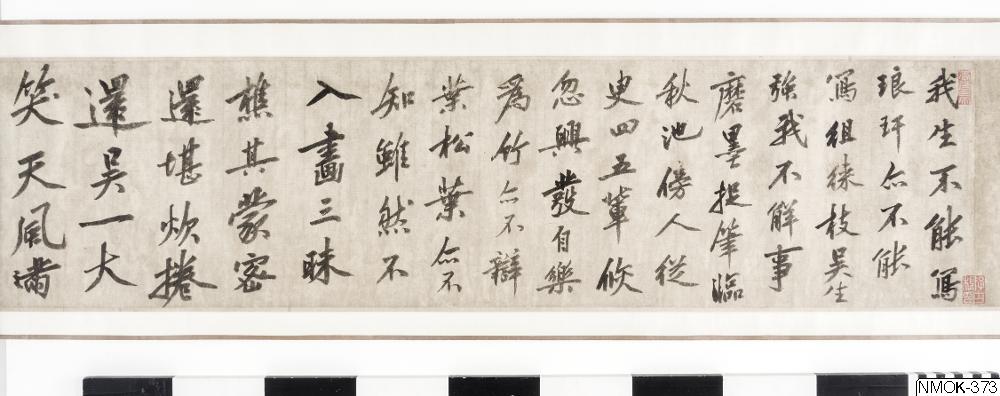 我生不能寫
琅玕亦不能
寫徂徠枝吳生
強我不解事
磨墨捉筆臨
秋池傍人從
史四五輩倏
忽興發自樂
為竹亦不辯
葉松葉亦不
知雖然不
入畫三昧
樵其蒙密
還堪炊捲
還吳一大
笑天風滿
NMOK-373